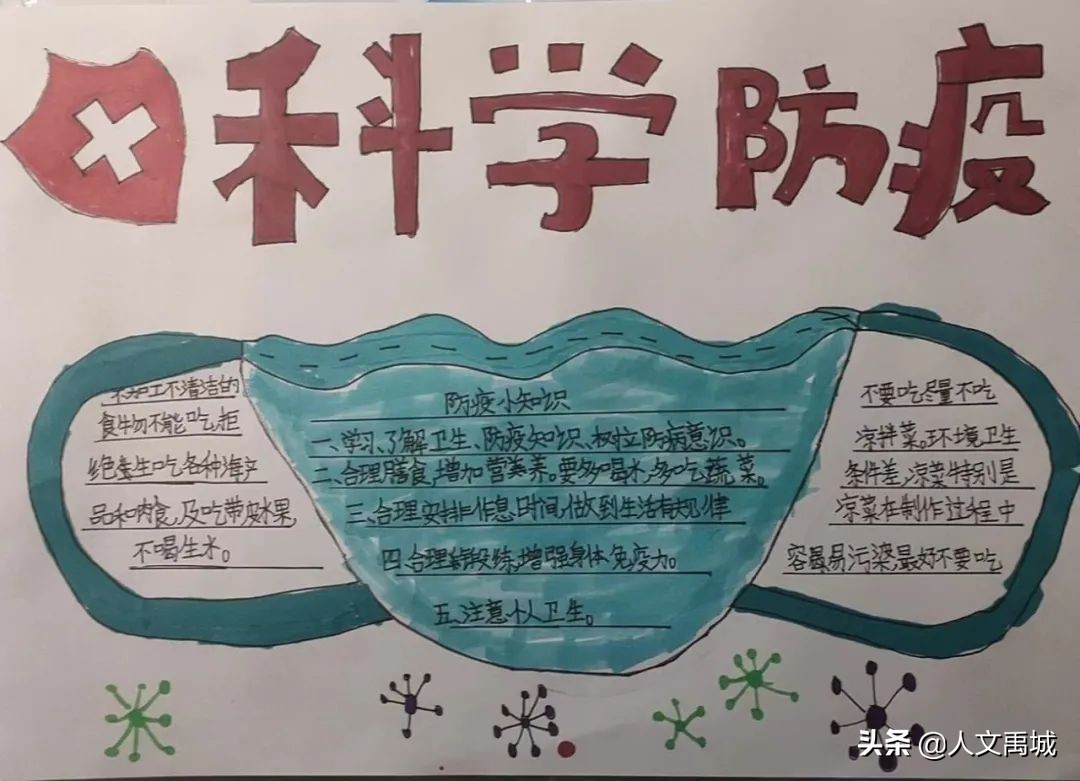 科学防疫
不加工不清洁的
食物不能吃,拒
绝食生吃各种海产
品和肉食,及吃带皮水果,
不喝生水。
防疫小知识
一、学习、了解卫生、防疫知识、树立防病意识。
二、合理膳食,增加营养。要多喝水,多吃蔬菜。
三、合理安排作息时间,做到生活有规律
四、合理锻练,增强身体免疫力。
五、注意个人卫生。
不要吃尽量不吃
凉拌菜。环境卫生
条件差,凉菜特别是
凉菜在制作过程中
容易污染,最好不要吃
头条 @人文禹城